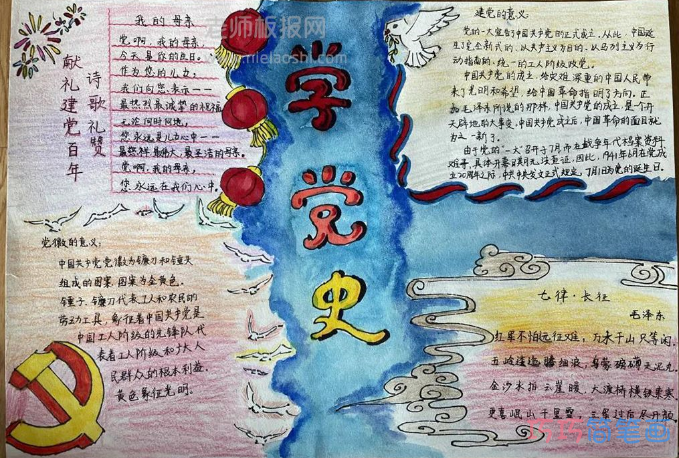 老师板报网
www.mielaoshi.com
学党史
献礼建党百年
诗歌礼赞
我的母亲
党啊,我的母亲,
今天是你的生日。
作为您的儿女,
我们向您表示一一
最热烈最诚挚的祝福。
无论何时何地,
您永远是儿女心中一一
党啊,我的母亲,
您永远在我们心中。
建党的意义:
党的一大宣告中国共产党的正式成立,从此,中国诞
动指南的,统一的工人阶级政党。
中国共产党的成立,给灾难深重的中国人民带
来了光明和希望,给中国革命指明了方向。正
如毛泽东所说的那样,中国共产党的成立,是个开
天辟地的大事变,中国共产党成立后,中国革命的面目就
为之一新了。
由于党的“一大”召开于7月而在战争年代档案资料
难寻,具体开幕日期无法查证,因此,1941年6月在党成
立20周年之际,中共中央发文正式规定,7月1日为党的诞生日。
党徽的意义:
中国共产党党徽为镰刀和锤头
组成的图案,图案为金黄色。
锤子、镰刀代表工人和农民的
劳动工具,象征着中国共产党是
中国工人阶级的先锋队代
表着工人阶级和广大人
民群众的根本利益
黄色象征光明。
七律·长征
毛泽东
红军不怕远征难,万水千山只等闲。
五岭逶迤腾细浪,乌蒙磅礴走泥丸。
金沙水拍云崖暖,大渡桥横铁索寒。
更喜岷山千里雪,三军过后尽开颜。
巧巧简笔画